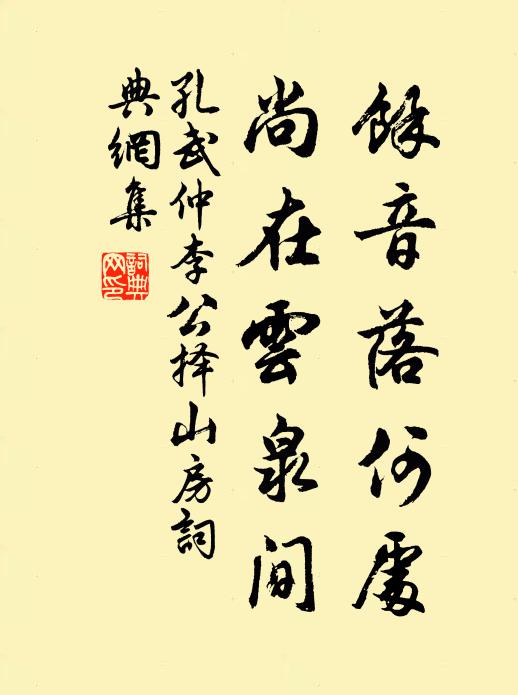 餘音落何處
尚在雲泉間
孔武仲李公择山房詞
典網集
詞典網印